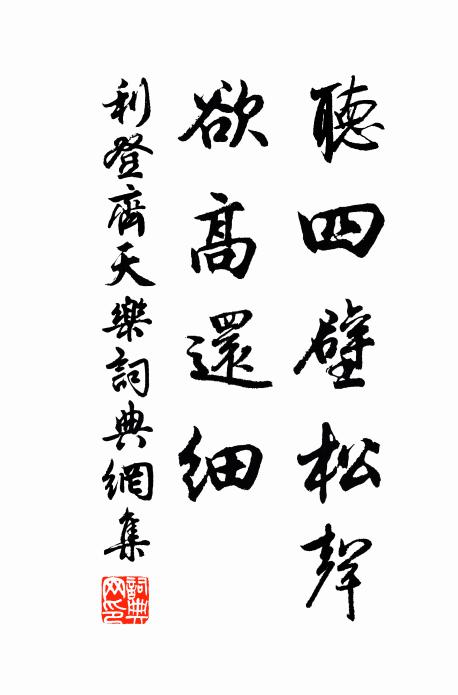 聽四壁松聲
欲高還細
利登齊天樂詞典網集
詞典網印